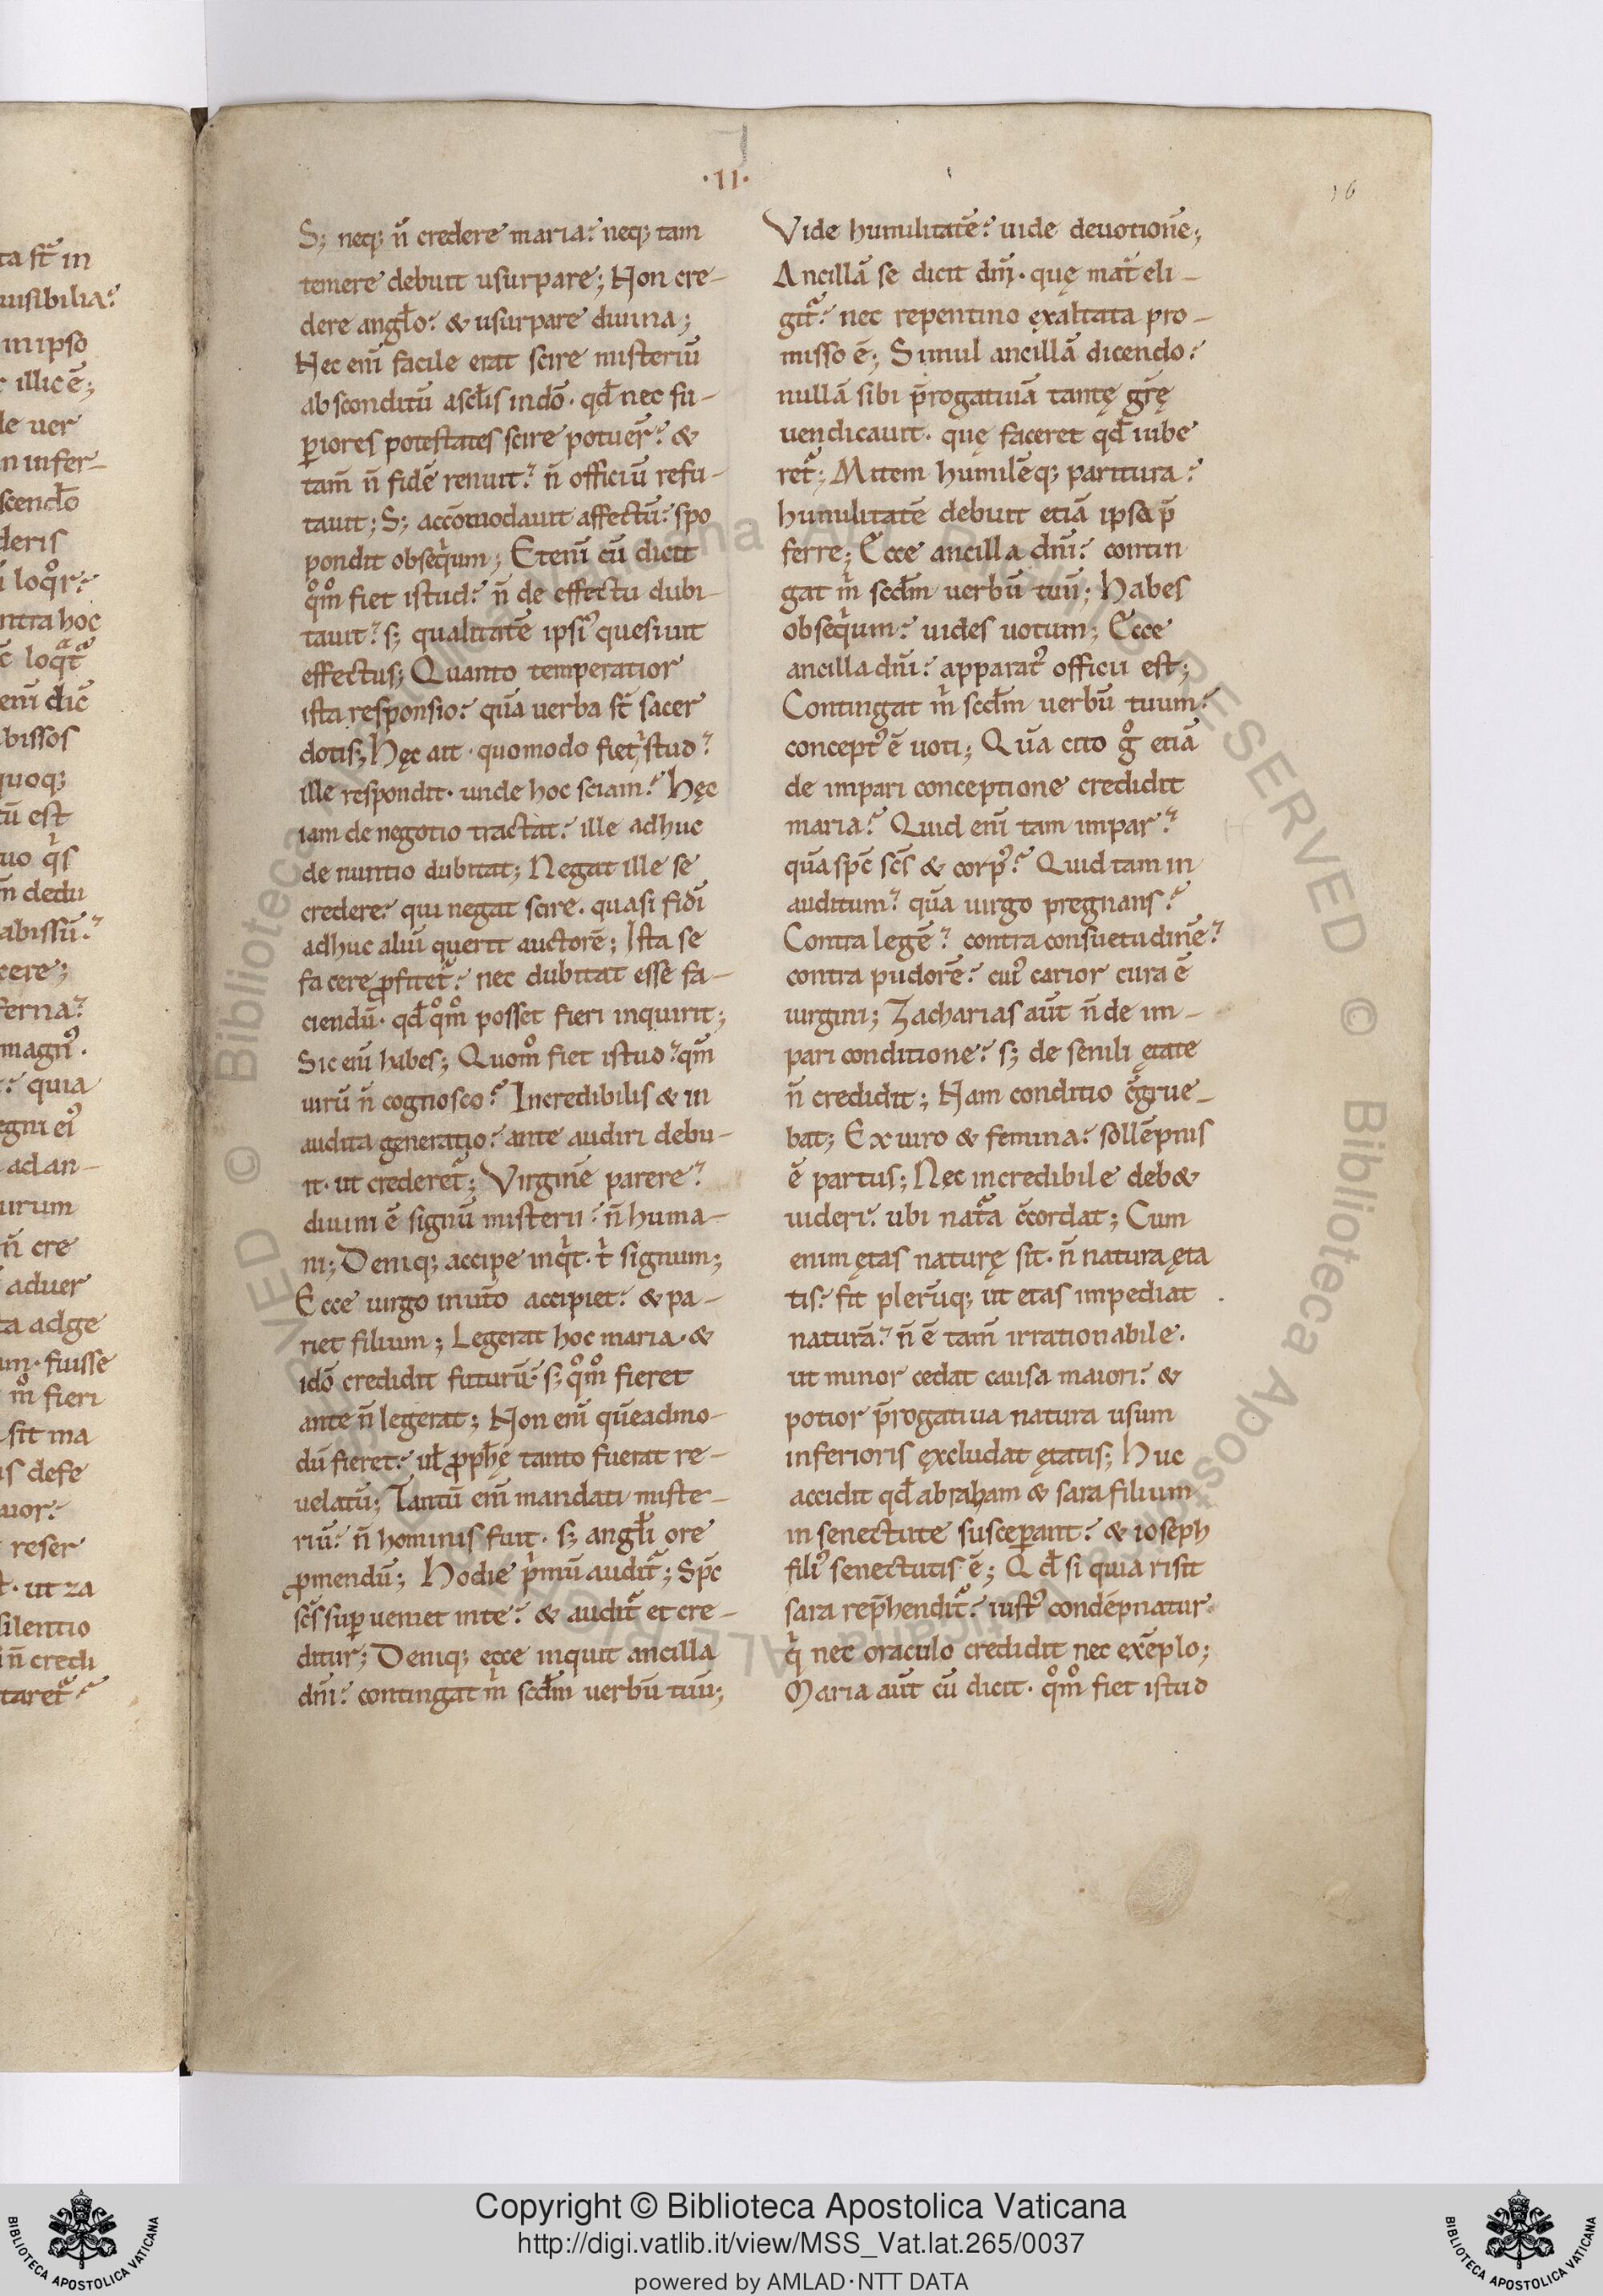 ·II·
16
S; neq; n̄ credere maria? neq; tam
temere debuit usurpare; Non cre-
dere angl̄o? & usurpare diuina;
Nec eni̅ facile erat scire misteriū
absconditū asc̄lis indō. qd̄ nec su-
ꝑiores potestates scire potuer̄? &
tam̄ n̄ fidē renuit? n̄ officiū refu-
tauit; S; accōmodauit affectū? spo
pondit obseqͥum; Eteni̅ cū dicit
qͦm̊ fiet istud? n̄ de effectu dubi-
tauit? s; qualitatē ipsiꝰ quesiuit
effectus; Quanto temperatior
ista responsio? quā uerba st̄ sacer
dotis; Hęc ait. quomodo fiet istud?
ille respondit. unde hoc sciam? Hęc
iam de negotio tractat? ille adhuc
de nuntio dubitat; Negat ille se
credere? qui negat scire. quasi fidi̅
adhuc aliū querit auctorē; Ista se
facere ꝓfitet᷑? nec dubitat esse fa-
ciendū. qd̄ qͦm̊ posset fieri inquirit;
Sic eni̅ habes; Quom̊ fiet istud? qm̄
uirū n̄ cognosco? Incredibilis & in
audita generatio? ante audiri debu-
it. ut crederet᷑; Virginē parere?
diuini ē signū misterii? n̄ huma-
ni; Deniq; accipe inqͥt. tͥ signum;
Ecce uirgo inut̄o accipiet? & pa-
riet filium; Legerat hoc maria. &
idō credidit futurū? s; qͦm̊ fieret
ante n̄ legerat; Non eni̅ quēadmo-
dū fieret? ul̄ ꝓph̄ę tanto fuerat re-
uelatū; Tantū eni̅ mandati miste-
riū? n̄ hominis fuit. s; angl̄i ore
ꝓmendū; Hodie pͥmū audit᷑; Sp̄c
sc̄s suꝑueniet inte? & audit᷑ et cre-
ditur; Deniq; ecce inquit ancilla
dn̄i? contingat mͥ scd̄m uerbū tuū;
Vide humilitatē? uide deuotionē;
Ancillā se dicit dn̄i. quę mat̄ eli-
git᷑? nec repentino exaltata pro-
misso ē; Simul ancillā dicendo?
nullā sibi p̄rogatiuā tantę gr̄ę
uendicauit. quę faceret qd̄ iube
ret᷑; Mitem humilēq; paritura?
humilitatē debuit etiā ipsa p̄
ferre; Ecce ancilla dn̄i? contin
gat mͥ scd̄m uerbū tuū; Habes
obseqͥum? uides uotum; Ecce
ancilla dn̄i? apparatꝰ officii est;
Contingat mͥ scd̄m uerbū tuum?
conceptꝰ ē uoti; Quā cito gͦ etiā
de impari conceptione credidit
maria? Quid eni̅ tam impar?
quā sp̄c sc̄s & corpꝰ? Quid tam in
auditum? quā uirgo pregnans?
Contra legē? contra consuetudinē?
contra pudorē? cuiꝰ carior cura ē
uirgini; Zacharias aūt n̄ de im-
pari conditione? s; de senili ętate
n̄ credidit; Nam conditio c̄grue-
bat; Ex uiro & femina? sollēpnis
ē partus; Nec incredibile deb&
uideri? ubi nat᷑a c̄cordat; Cum
enim ętas naturę sit. n̄ natura ęta
tis? fit plerūq; ut etas impediat
naturā? n̄ ē tam̄ irrationabile.
ut minor cedat causa maiori? &
potior p̄rogatiua natura usum
inferioris ęxcludat ętatis; Huc
accidit qd̄ abraham & sara filium
in senectute susceꝑant? & ioseph
filiꝰ senectutis ē; Qd̄ si quia risit
sara rep̄hendit᷑? iustꝰ condēpnatur
qͥ nec oraculo credidit nec exēplo;
Maria aūt cū dicit. qͦm̊ fiet istud
Copyright © Biblioteca Apostolica Vaticana
http://digi.vatlib.it/view/MSS_Vat.lat.265/0037
powered by AMLAD·NTT DATA